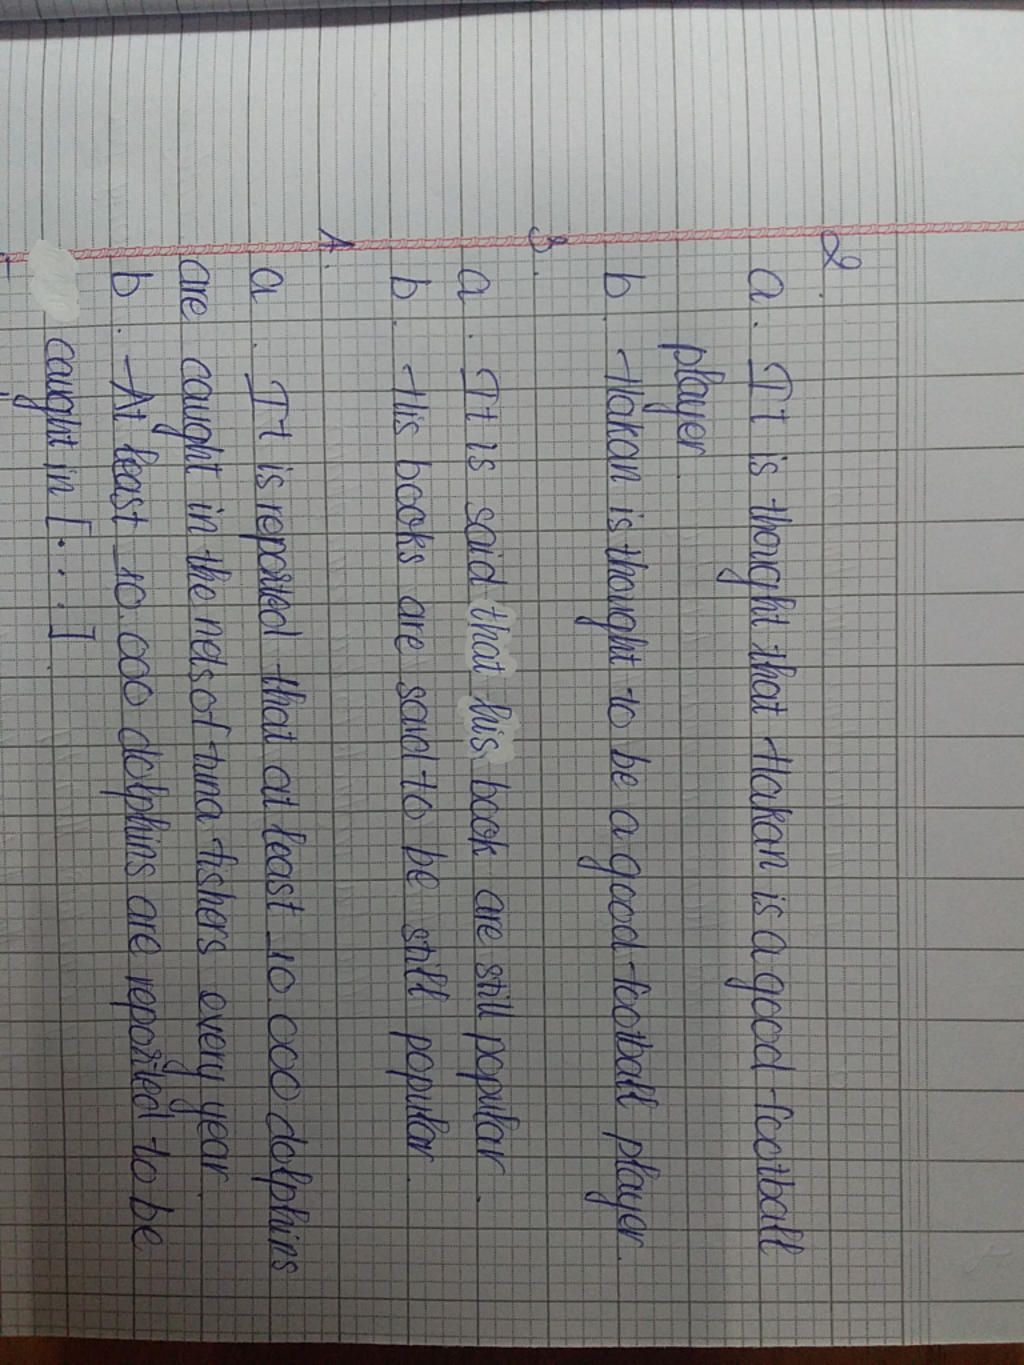 2.
a. It is thought that Hakan is a good football
player
b. Hakan is thought to be a good football player.
3.
a. It is said that his book are still popular.
b. His books are said to be still popular.
a. It is reported that at least 10.000 dolphins
are caught in the nets of tuna fishers every year.
b. At least 10.000 dolphins are reported to be
caught in [...]